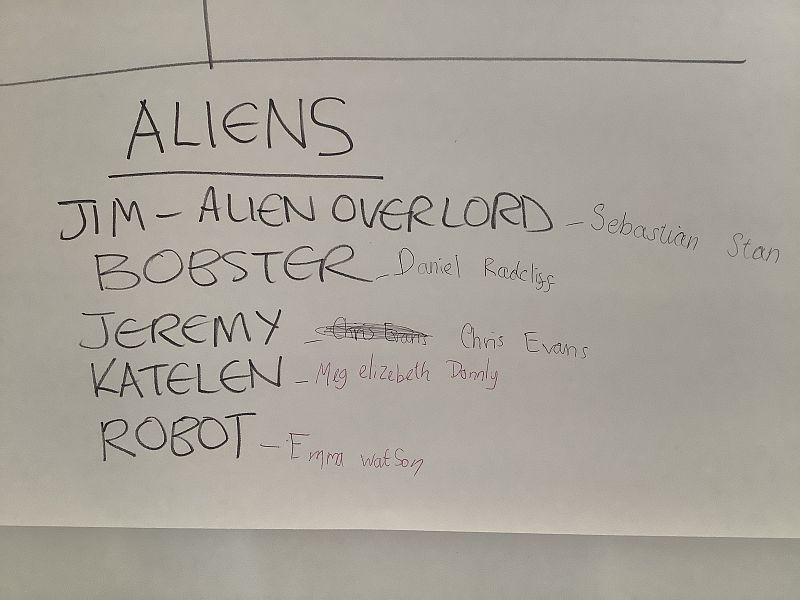 ALIENS
JIM - ALIEN OVERLORD - Sebastian Stan
BOBSTER - Daniel Radcliff
JEREMY - Chris Evans Chris Evans
KATELEN - Meg elizebeth Donnly
ROBOT - Emma watson